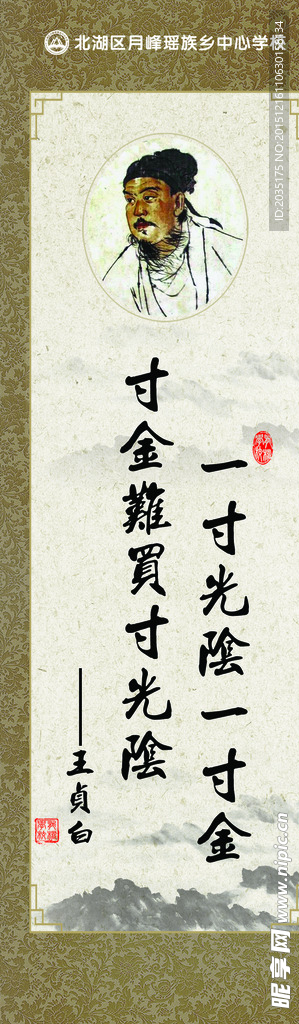 北湖区月峰瑶族乡中心学校
一寸光陰一寸金
寸金難買寸光陰
——王貞白
ID:2035175 NO:20151216110630155134
昵享网 www.nipic.cn